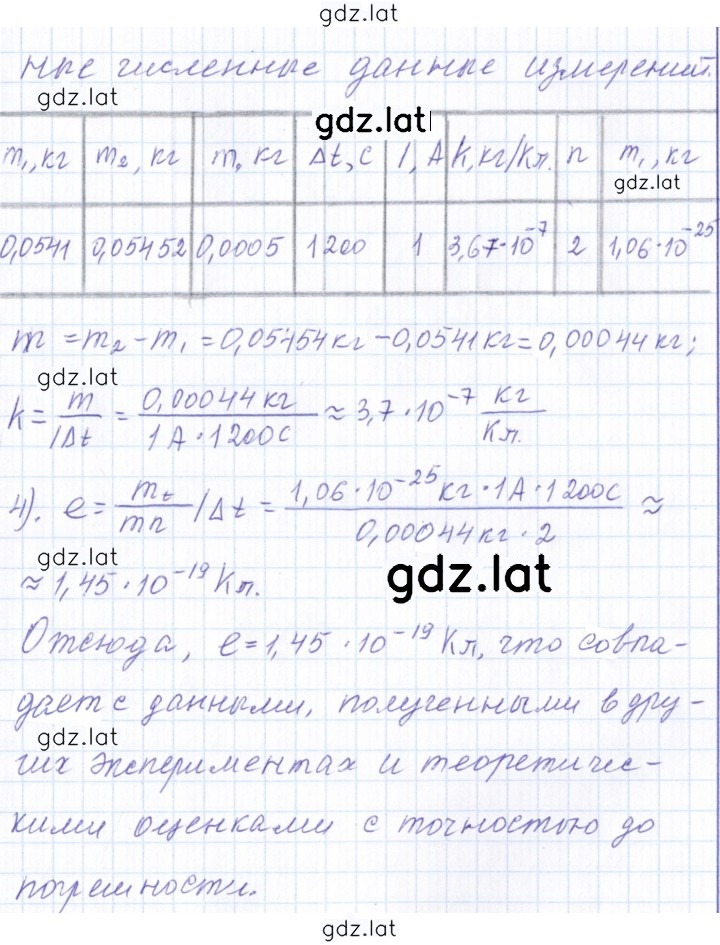 gdz.lat
ные численные данные измерений.
gdz.lat
gdz.lat
m₁, кг m₂, кг m, кг Δt, с I, А k, кг/Кл. n m₁, кг
gdz.lat
0,0541 0,05452 0,0005 1200 1 3,67·10⁻⁷ 2 1,06·10⁻²⁵
m = m₂ - m₁ = 0,05454 кг - 0,0541 кг = 0,00044 кг;
gdz.lat
k = m/IΔt = 0,00044 кг/1А·1200с ≈ 3,7·10⁻⁷ кг/Кл.
4). e = m_t/mn IΔt = 1,06·10⁻²⁵ кг·1А·1200с/0,00044 кг·2 ≈
gdz.lat
gdz.lat
≈ 1,45·10⁻¹⁹ Кл.
Отсюда, e = 1,45·10⁻¹⁹ Кл, что совпа-
дает с данными, полученными в дру-
gdz.lat
гих экспериментах и теоретичес-
кими оценками с точностью до
погрешности.
gdz.lat